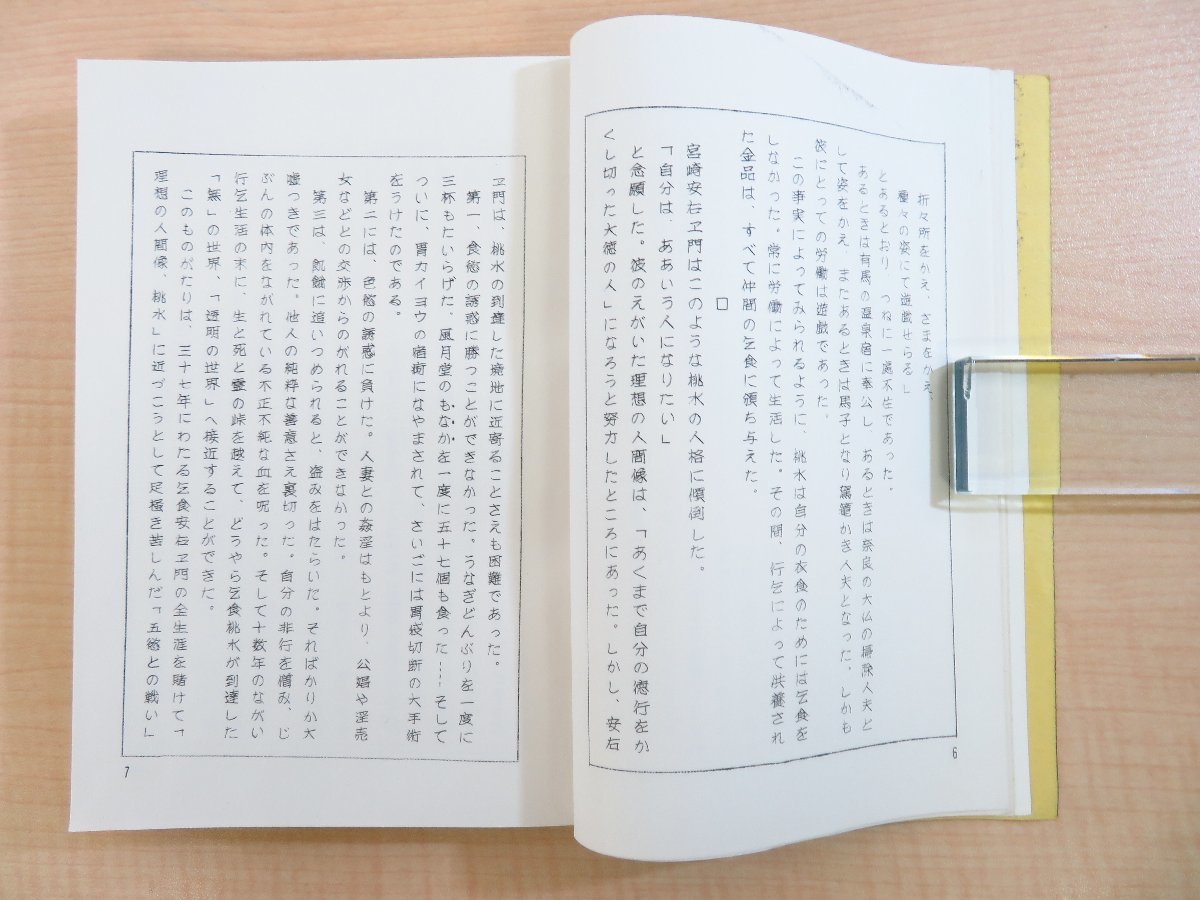 折々所をかえ、さまをかえ、
種々の姿にて遊戯せらる」
とあるとおり、つねに一處不住であった。
あるときは有馬の温泉宿に奉公し、あるときは奈良の大仏の掃除人夫と
して姿をかえ、またあるときは馬子となり駕籠かき人夫となった。しかも
彼にとっての労働は遊戯であった。
この事実によってみられるように、桃水は自分の衣食のためには乞食を
しなかった。常に労働によって生活した。その間、行乞によって供養され
た金品は、すべて仲間の乞食に頒ち与えた。
□
宮崎安右ヱ門はこのような桃水の人格に傾倒した。
「自分は、ああいう人になりたい」
と念願した。彼のえがいた理想の人間像は、「あくまで自分の徳行をか
くし切った大徳の人」になろうと努力したところにあった。しかし、安右
6
ヱ門は、桃水の到達した境地に近寄ることさえも困難であった。
第一、食慾の誘惑に勝つことができなかった。うなぎどんぶりを一度に
三杯もたいらげた。風月堂のもなかを一度に五十七個も食った……そして
ついに、胃カイヨウの宿痾になやまされて、さいごには胃袋切断の大手術
をうけたのである。
第二には、色慾の誘惑に負けた。人妻との姦淫はもとより、公娼や淫売
女などとの交渉からのがれることができなかった。
第三は、飢餓に追いつめられると、盗みをはたらいた。そればかりか大
嘘つきであった。他人の純粋な善意さえ裏切った。自分の非行を憎み、じ
ぶんの体内をながれている不正不純な血を呪った。そして十数年のながい
行乞生活の末に、生と死と霊の峠を越えて、どうやら乞食桃水が到達した
「無」の世界、「透明の世界」へ接近することができた。
このものがたりは、三十七年にわたる乞食安右ヱ門の全生涯を賭けて、「
理想の人間像、桃水」に近づこうとして足掻き苦しんだ「五慾との戦い」
7